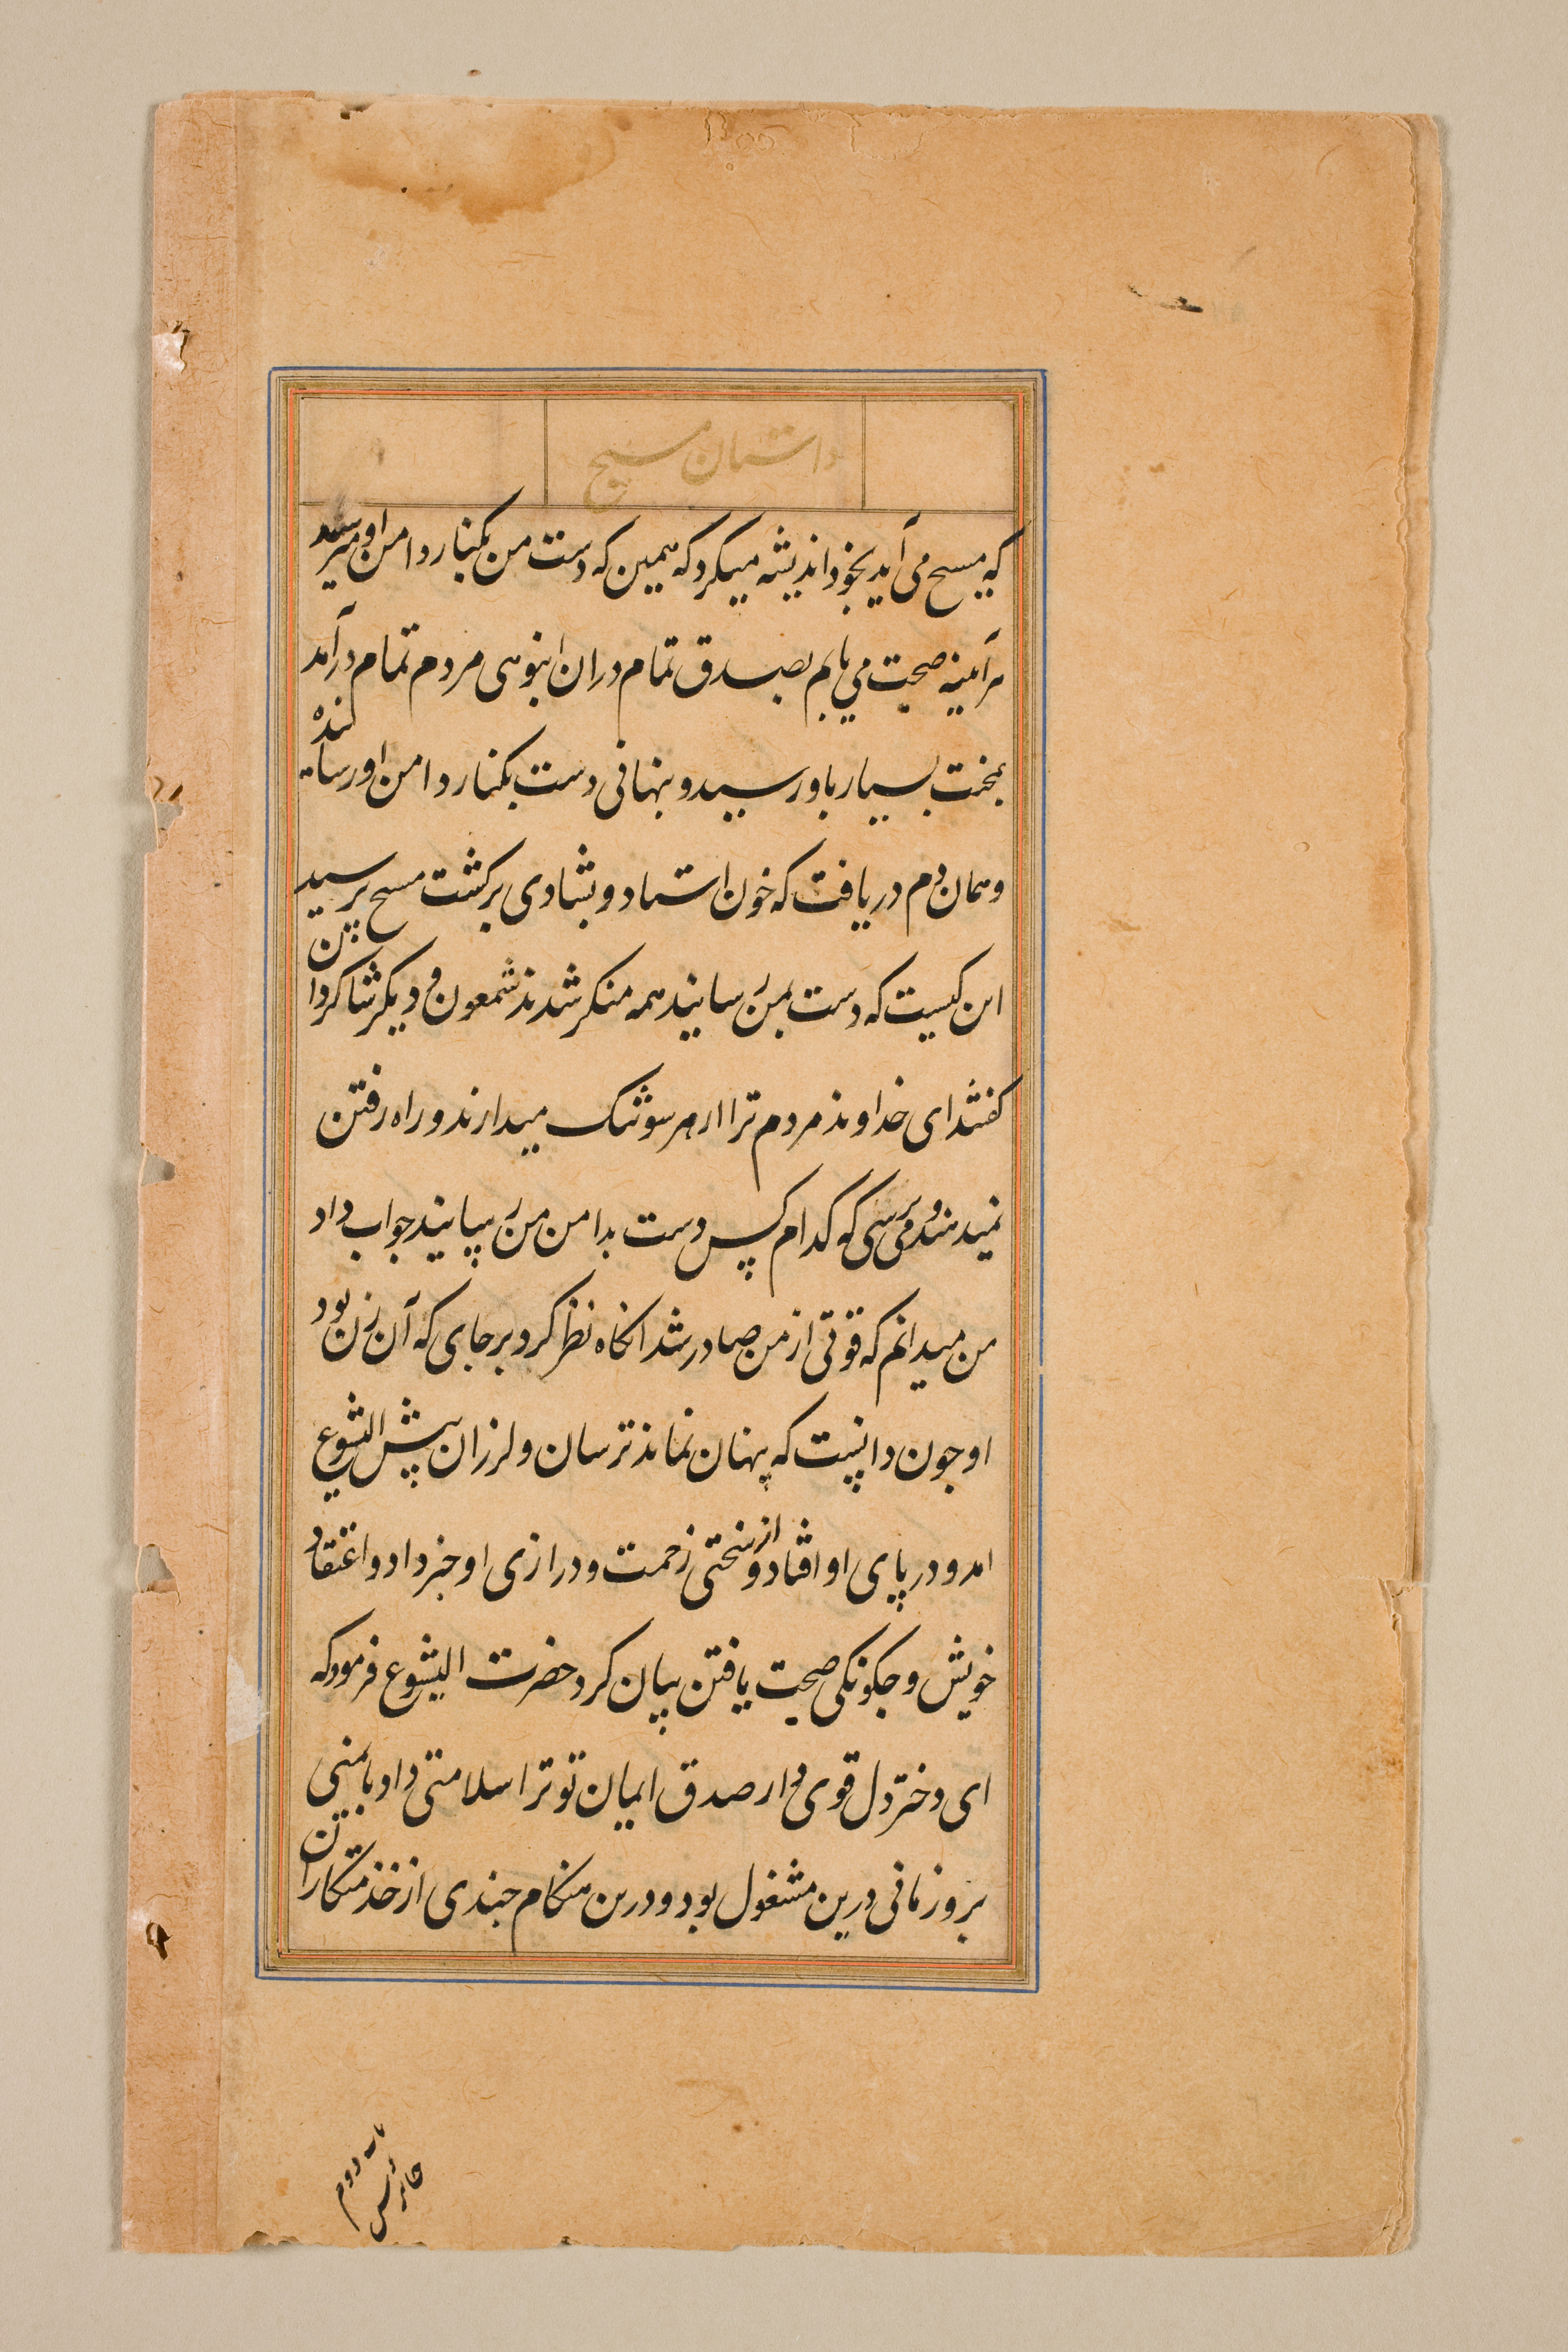 داستان مسیح
که مسیح می آید بخود اندیشه میکرد که همین که دست من بکنار دامن او میرسد
هرآینه صحت می یابم بصدق تمام دران انبوهی مردم تمام درآمد
بمحنت بسیار باو رسید و بنهانی دست بکنار دامن او رسانیده
و همان دم دریافت که خون استاد و بشادی برکشت مسیح پرسید
این کیست که دست بمن رسانید همه منکر شدند شمعون و دیکر شاکردان
کفتند ای خداوند مردم ترا از هر سو تنک میدارند و راه رفتن
نمیدهند و می پرسی که کدام کس دست بدامن من رسانید جواب داد
من میدانم که قوتی از من صادر شد انکاه نظر کرد بر جای که آن زن بود
او چون دانست که پنهان نماند ترسان و لرزان پیش الیشوع
امد و در پای او افتاد و از سختی زحمت و درازی او خبر داد و اعتقاد
خویش و چکونکی صحت یافتن بیان کرد حضرت الیشوع فرمود که
ای دختر دل قوی دار صدق ایمان تو ترا سلامتی داد بایمنی
برو زمانی درین مشغول بود و درین هنکام چندی از خدمتکاران